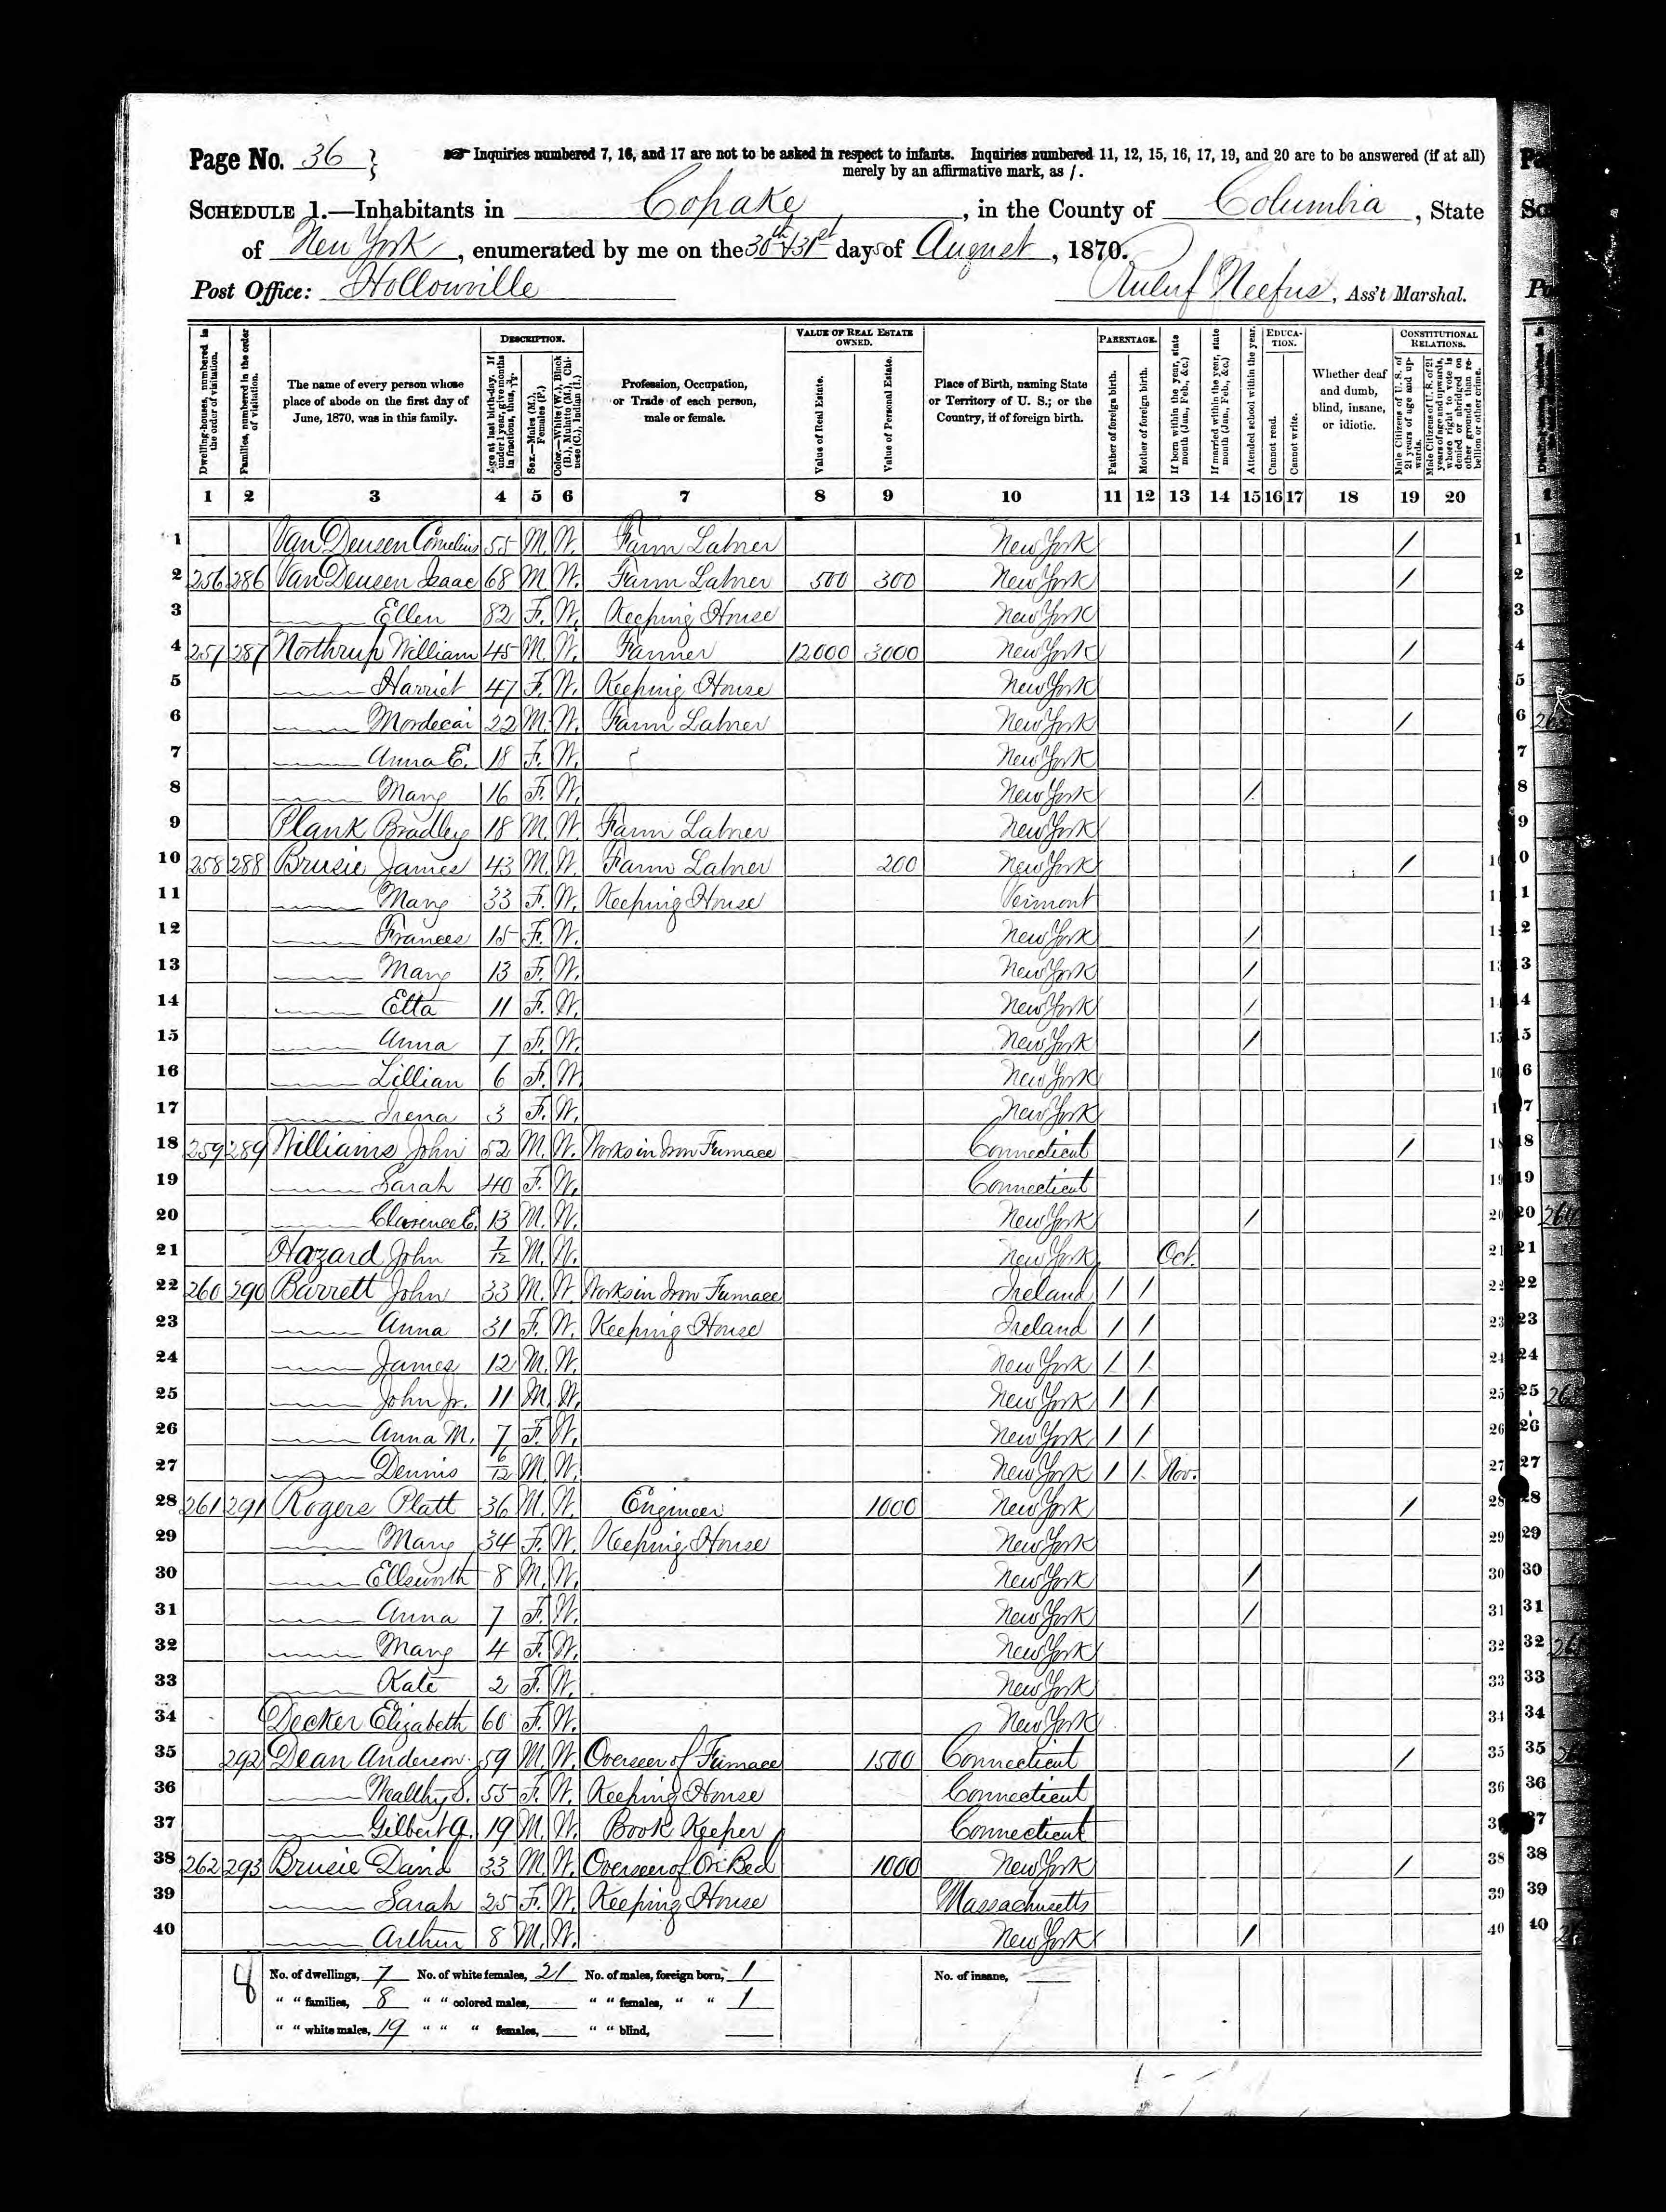 Page No. 36 } ☞ Inquiries numbered 7, 16, and 17 are not to be asked in respect to infants. Inquiries numbered 11, 12, 15, 16, 17, 19, and 20 are to be answered (if at all)
merely by an affirmative mark, as /.
SCHEDULE 1.—Inhabitants in Copake, in the County of Columbia, State
of New York, enumerated by me on the 30th & 31st days of August, 1870.
Post Office: Hollowville Ruluf Neefus, Ass't Marshal.
Dwelling-houses, numbered in the order of visitation.
Families, numbered in the order of visitation.
The name of every person whose place of abode on the first day of June, 1870, was in this family.
DESCRIPTION.
Age at last birth-day. If under 1 year, give months in fractions, thus, 3/12.
Sex.—Males (M.), Females (F.)
Color.—White (W.), Black (B.), Mulatto (M.), Chinese (C.), Indian (I.)
Profession, Occupation, or Trade of each person, male or female.
VALUE OF REAL ESTATE OWNED.
Value of Real Estate.
Value of Personal Estate.
Place of Birth, naming State or Territory of U. S.; or the Country, if of foreign birth.
PARENTAGE.
Father of foreign birth.
Mother of foreign birth.
If born within the year, state month (Jan., Feb., &c.)
If married within the year, state month (Jan., Feb., &c.)
Attended school within the year.
EDUCATION.
Cannot read.
Cannot write.
Whether deaf and dumb, blind, insane, or idiotic.
CONSTITUTIONAL RELATIONS.
Male Citizens of U. S. of 21 years of age and upwards.
Male Citizens of U. S. of 21 years of age and upwards, whose right to vote is denied or abridged on other grounds than rebellion or other crime.
1 2 3 4 5 6 7 8 9 10 11 12 13 14 15 16 17 18 19 20
1 Van Deusen Cornelius 55 M. W. Farm Labrer New York /
2 256 286 Van Deusen Isaac 68 M W. Farm Labrer 500 300 New York /
3 Ellen 82 F. W. Keeping House New York
4 257 287 Northrup William 45 M. W. Farmer 12000 3000 New York /
5 Harriet 47 F. W. Keeping House New York
6 Mordecai 22 M. W. Farm Labrer New York /
7 Anna E. 18 F. W. New York
8 Mary 16 F. W. New York /
9 Plank Bradley 18 M. W. Farm Labrer New York
10 258 288 Brusie James 43 M. W. Farm Labrer 200 New York /
11 Mary 33 F. W. Keeping House Vermont
12 Frances 15 F. W. New York /
13 Mary 13 F. W. New York /
14 Etta 11 F. W. New York /
15 Anna 7 F. W. New York /
16 Lillian 6 F. W. New York
17 Irena 3 F. W. New York
18 259 289 Williams John 52 M. W. Works in Iron Furnace Connecticut /
19 Sarah 40 F. W. Connecticut
20 Clarence E. 13 M. W. New York /
21 Hazard John 7/12 M. W. New York Oct.
22 260 290 Barrett John 33 M. W Works in Iron Furnace Ireland / /
23 Anna 31 F. W. Keeping House Ireland / /
24 James 12 M. W. New York / /
25 John Jr. 11 M. W. New York / /
26 Anna M. 7 F. W. New York / /
27 Dennis 6/12 M. W. New York / / Nov.
28 261 291 Rogers Platt 36 M. W. Engineer 1000 New York /
29 Mary 34 F. W. Keeping House New York
30 Ellsworth 8 M. W. New York /
31 Anna 7 F. W. New York /
32 Mary 4 F. W. New York
33 Kate 2 F. W. New York
34 Decker Elizabeth 60 F. W. New York
35 292 Dean Anderson 59 M. W. Overseer of Furnace 1500 Connecticut /
36 Wealthy S. 55 F. W. Keeping House Connecticut
37 Gilbert A. 19 M. W. Book Keeper Connecticut
38 262 293 Brusie David 33 M. W. Overseer of Ore Bed 1000 New York /
39 Sarah 25 F. W. Keeping House Massachusetts
40 Arthur 8 M. W. New York /
8 No. of dwellings, 7 No. of white females, 21 No. of males, foreign born, 1 No. of insane,
" " families, 8 " " colored males, " " females, " " 1
" " white males, 19 " " " females, " " blind,